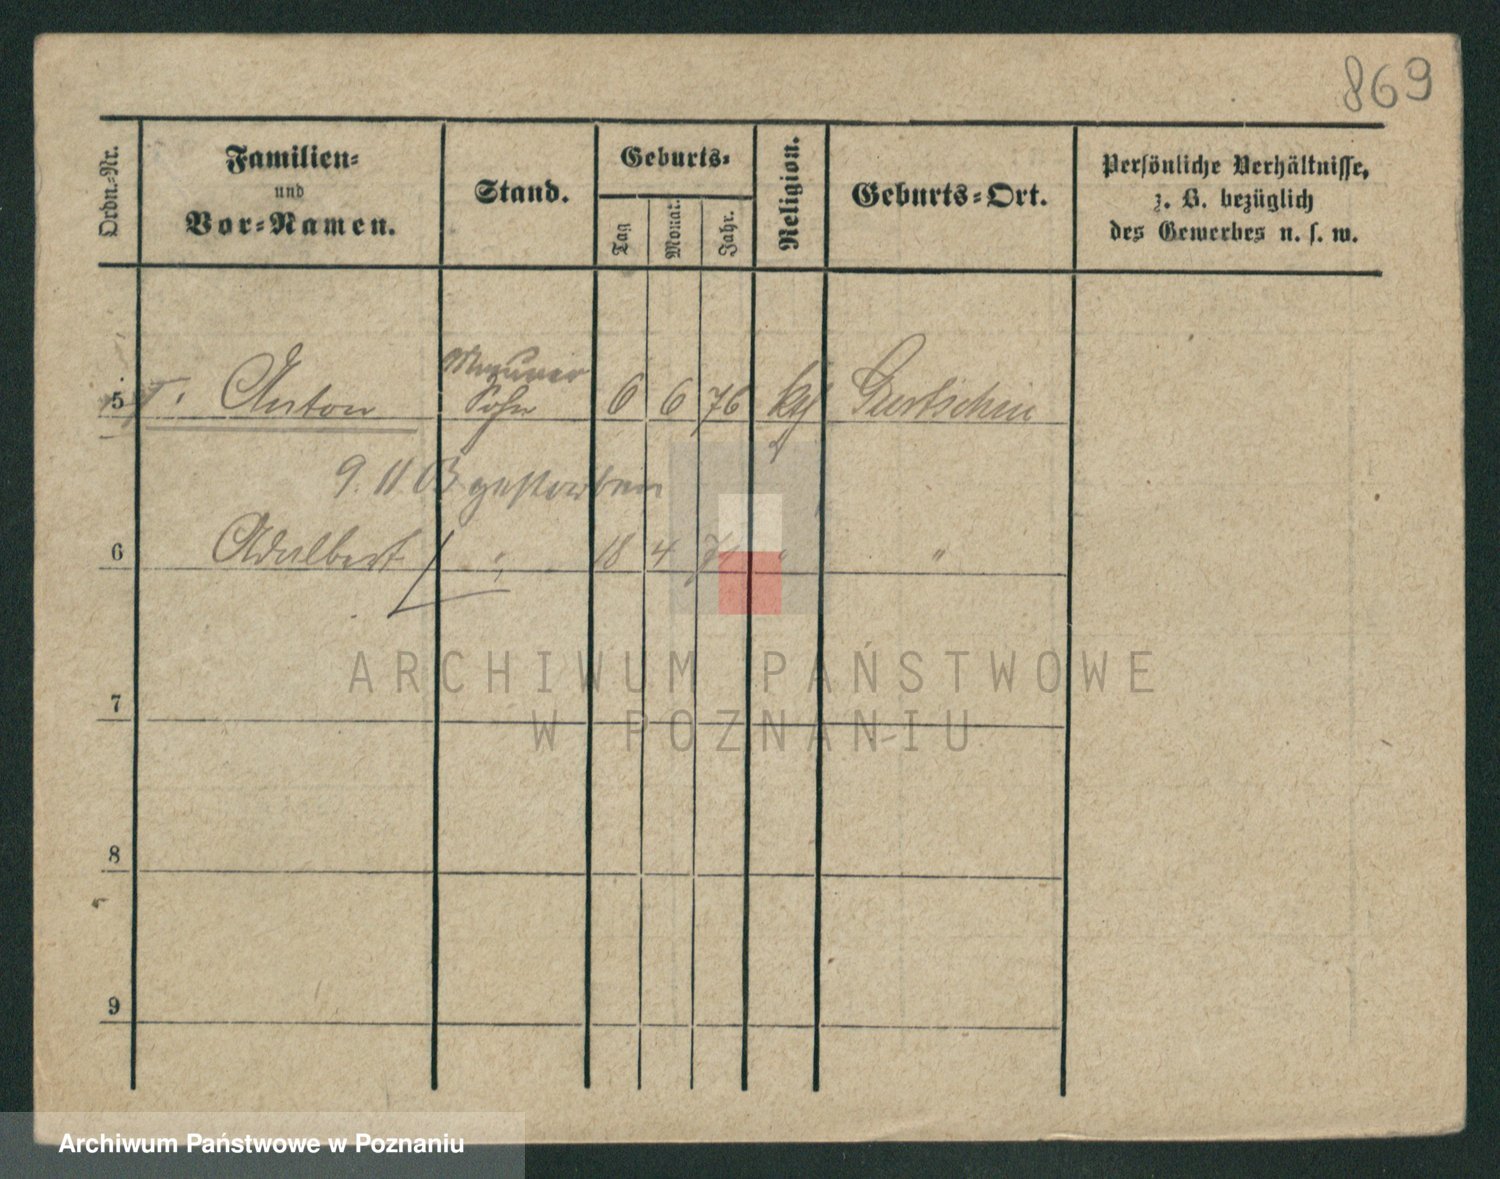 869
Ordn.-Nr.
Familien-
und
Vor-Namen.
Stand.
Geburts-
Tag
Monat.
Jahr.
Religion.
Geburts-Ort.
Persönliche Verhältnisse,
z. B. bezüglich
des Gewerbes u. s. w.
Maurer
5 Anton Sohn 6 6 76 kth
9. 11 03 gestorben
6 Adalbert " 18 4 " "
7
8
9
ARCHIWUM PAŃSTWOWE
W POZNANIU
Archiwum Państwowe w Poznaniu